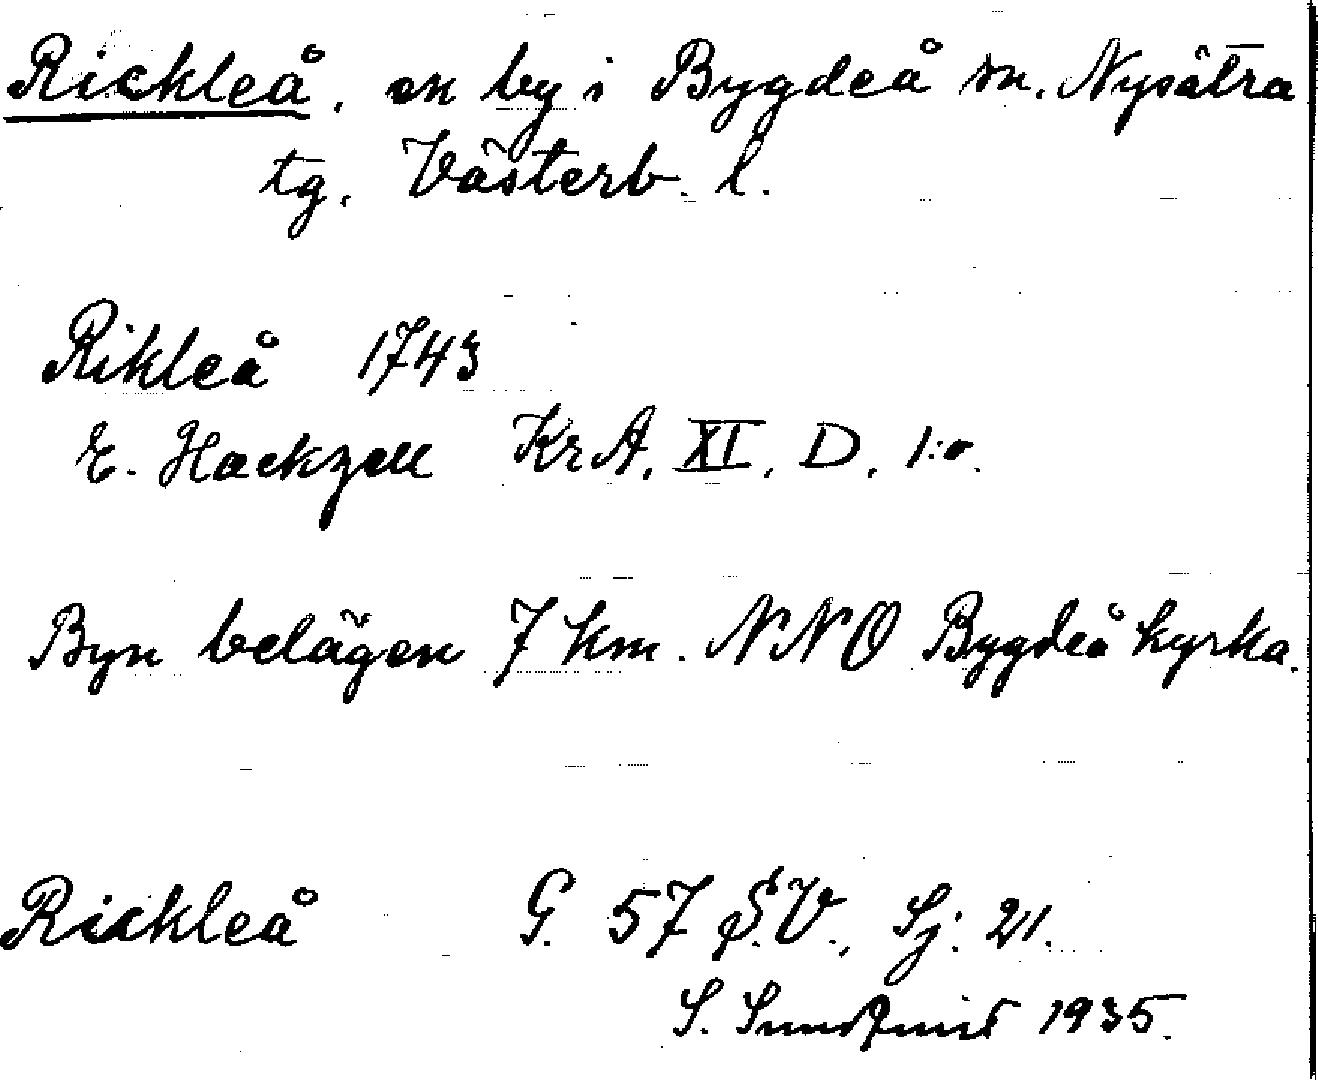 Rickleå, en by i Bygdeå sn. Nysätra
tg. Västerb. l.
Rikleå 1743
E. Hackzell KrA. XI. D. 1:o.
Byn belägen 7 km. NNO Bygdeå kyrka.
Rickleå G. 57 S.V., Sj: 21.
S. 1935.